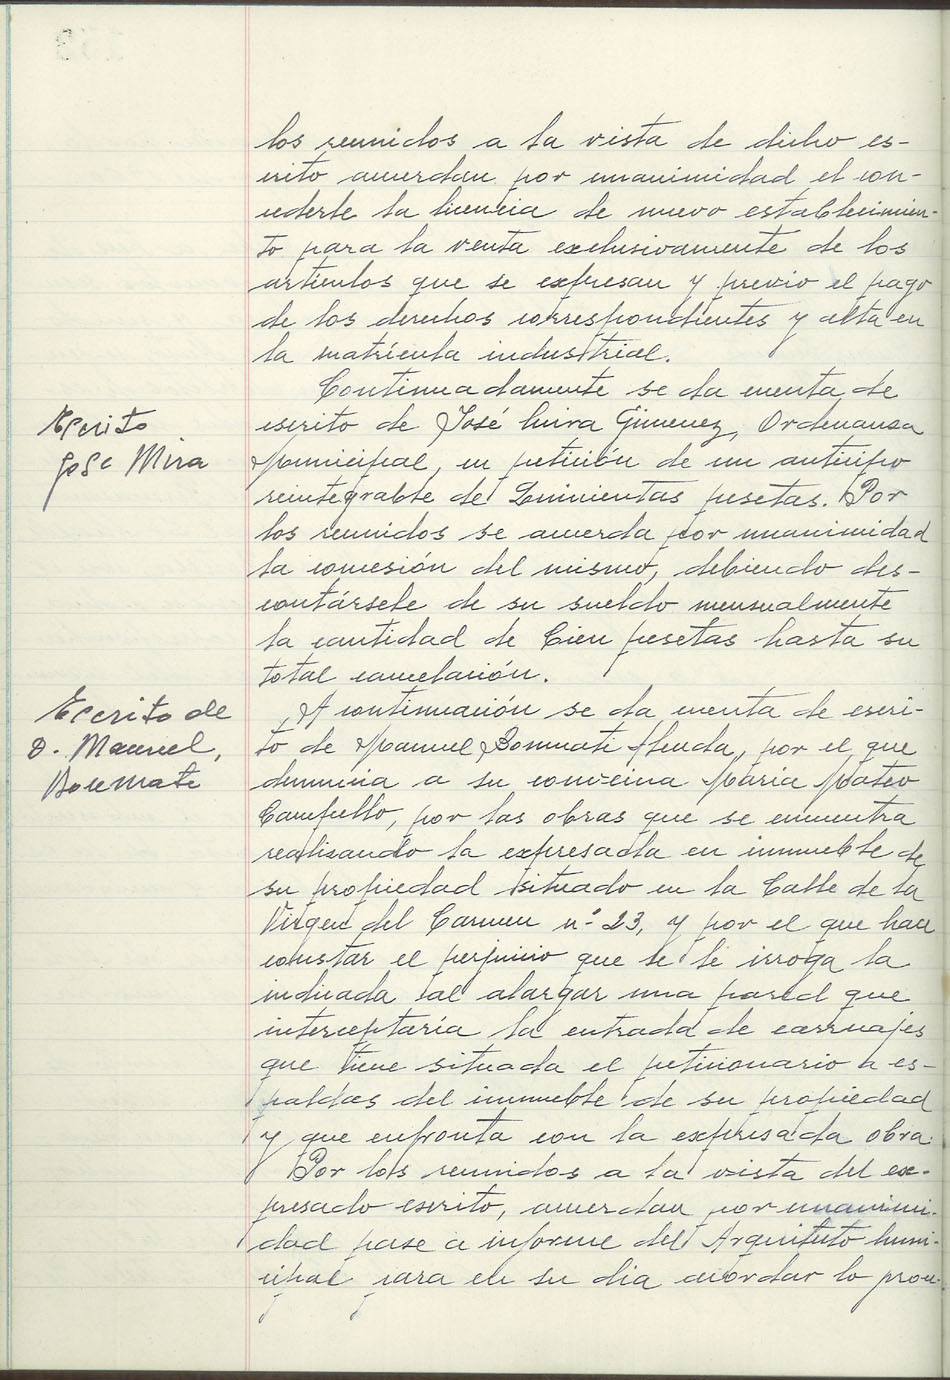 los reunidos a la vista de dicho es-
crito acuerdan por unanimidad el con-
cederle la licencia de nuevo establecimien-
to para la venta exclusivamente de los
articulos que se expresan y previo el pago
de los derechos correspondientes y alta en
la matrícula industrial.
Continuadamente se da cuenta de
Escrito
escrito de José Mira Gimenez, Ordenanza
José Mira
Municipal, en petición de un anticipo
reintegrable de Quinientas pesetas. Por
los reunidos se acuerda por unanimidad
la concesión del mismo, debiendo des-
contársele de su sueldo mensualmente
la cantidad de Cien pesetas hasta su
total cancelación.
Escrito de
A continuación se da cuenta de escri-
D. Manuel,
to de Manuel Bonmati, por el que
Bonmati
denuncia a su convecina Maria Mateo
Campello, por las obras que se encuentra
realizando la expresada en inmueble de
su propiedad situado en la Calle de la
Virgen del Carmen nº 23, y por el que hace
constar el perjuicio que se le irroga la
indicada al alargar una pared que
interceptaría la entrada de carruajes
que tiene situada el peticionario a es-
paldas del inmueble de su propiedad
y que enfronta con la expresada obra.
Por los reunidos a la vista del ex-
presado escrito, acuerdan por unanimi-
dad pase a informe del Arquitecto Muni-
cipal para en su dia acordar lo proce-